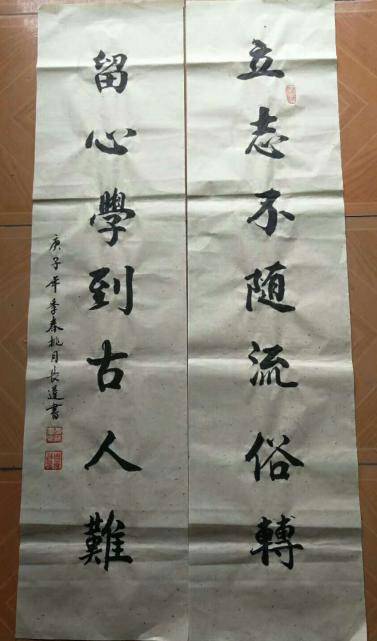 立志不随流俗轉
留心學到古人難
庚子年季春桃月良道書